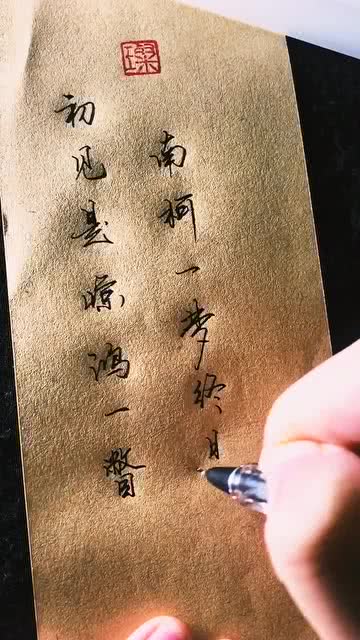 初见是惊鸿一瞥
南柯一梦终日